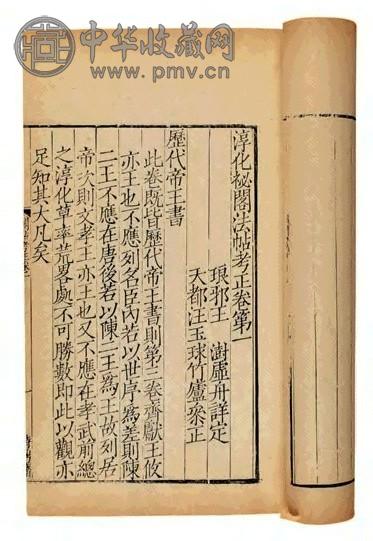 中华收藏网
www.pmv.cn
淳化祕閣法帖考正卷第一
琅邪王　澍虛舟詳定
天都汪玉球竹廬叅正
歷代帝王書
此卷既皆歷代帝王書則第二卷齊獻王攸
亦王也不應列名臣內若以世序為差則陳
二王不應在唐後若以陳二王為王故列居
帝次則文孝王亦王也又不應在孝武前總
之淳化草率荒畧處不可勝數即此以觀亦
足知其大凡矣